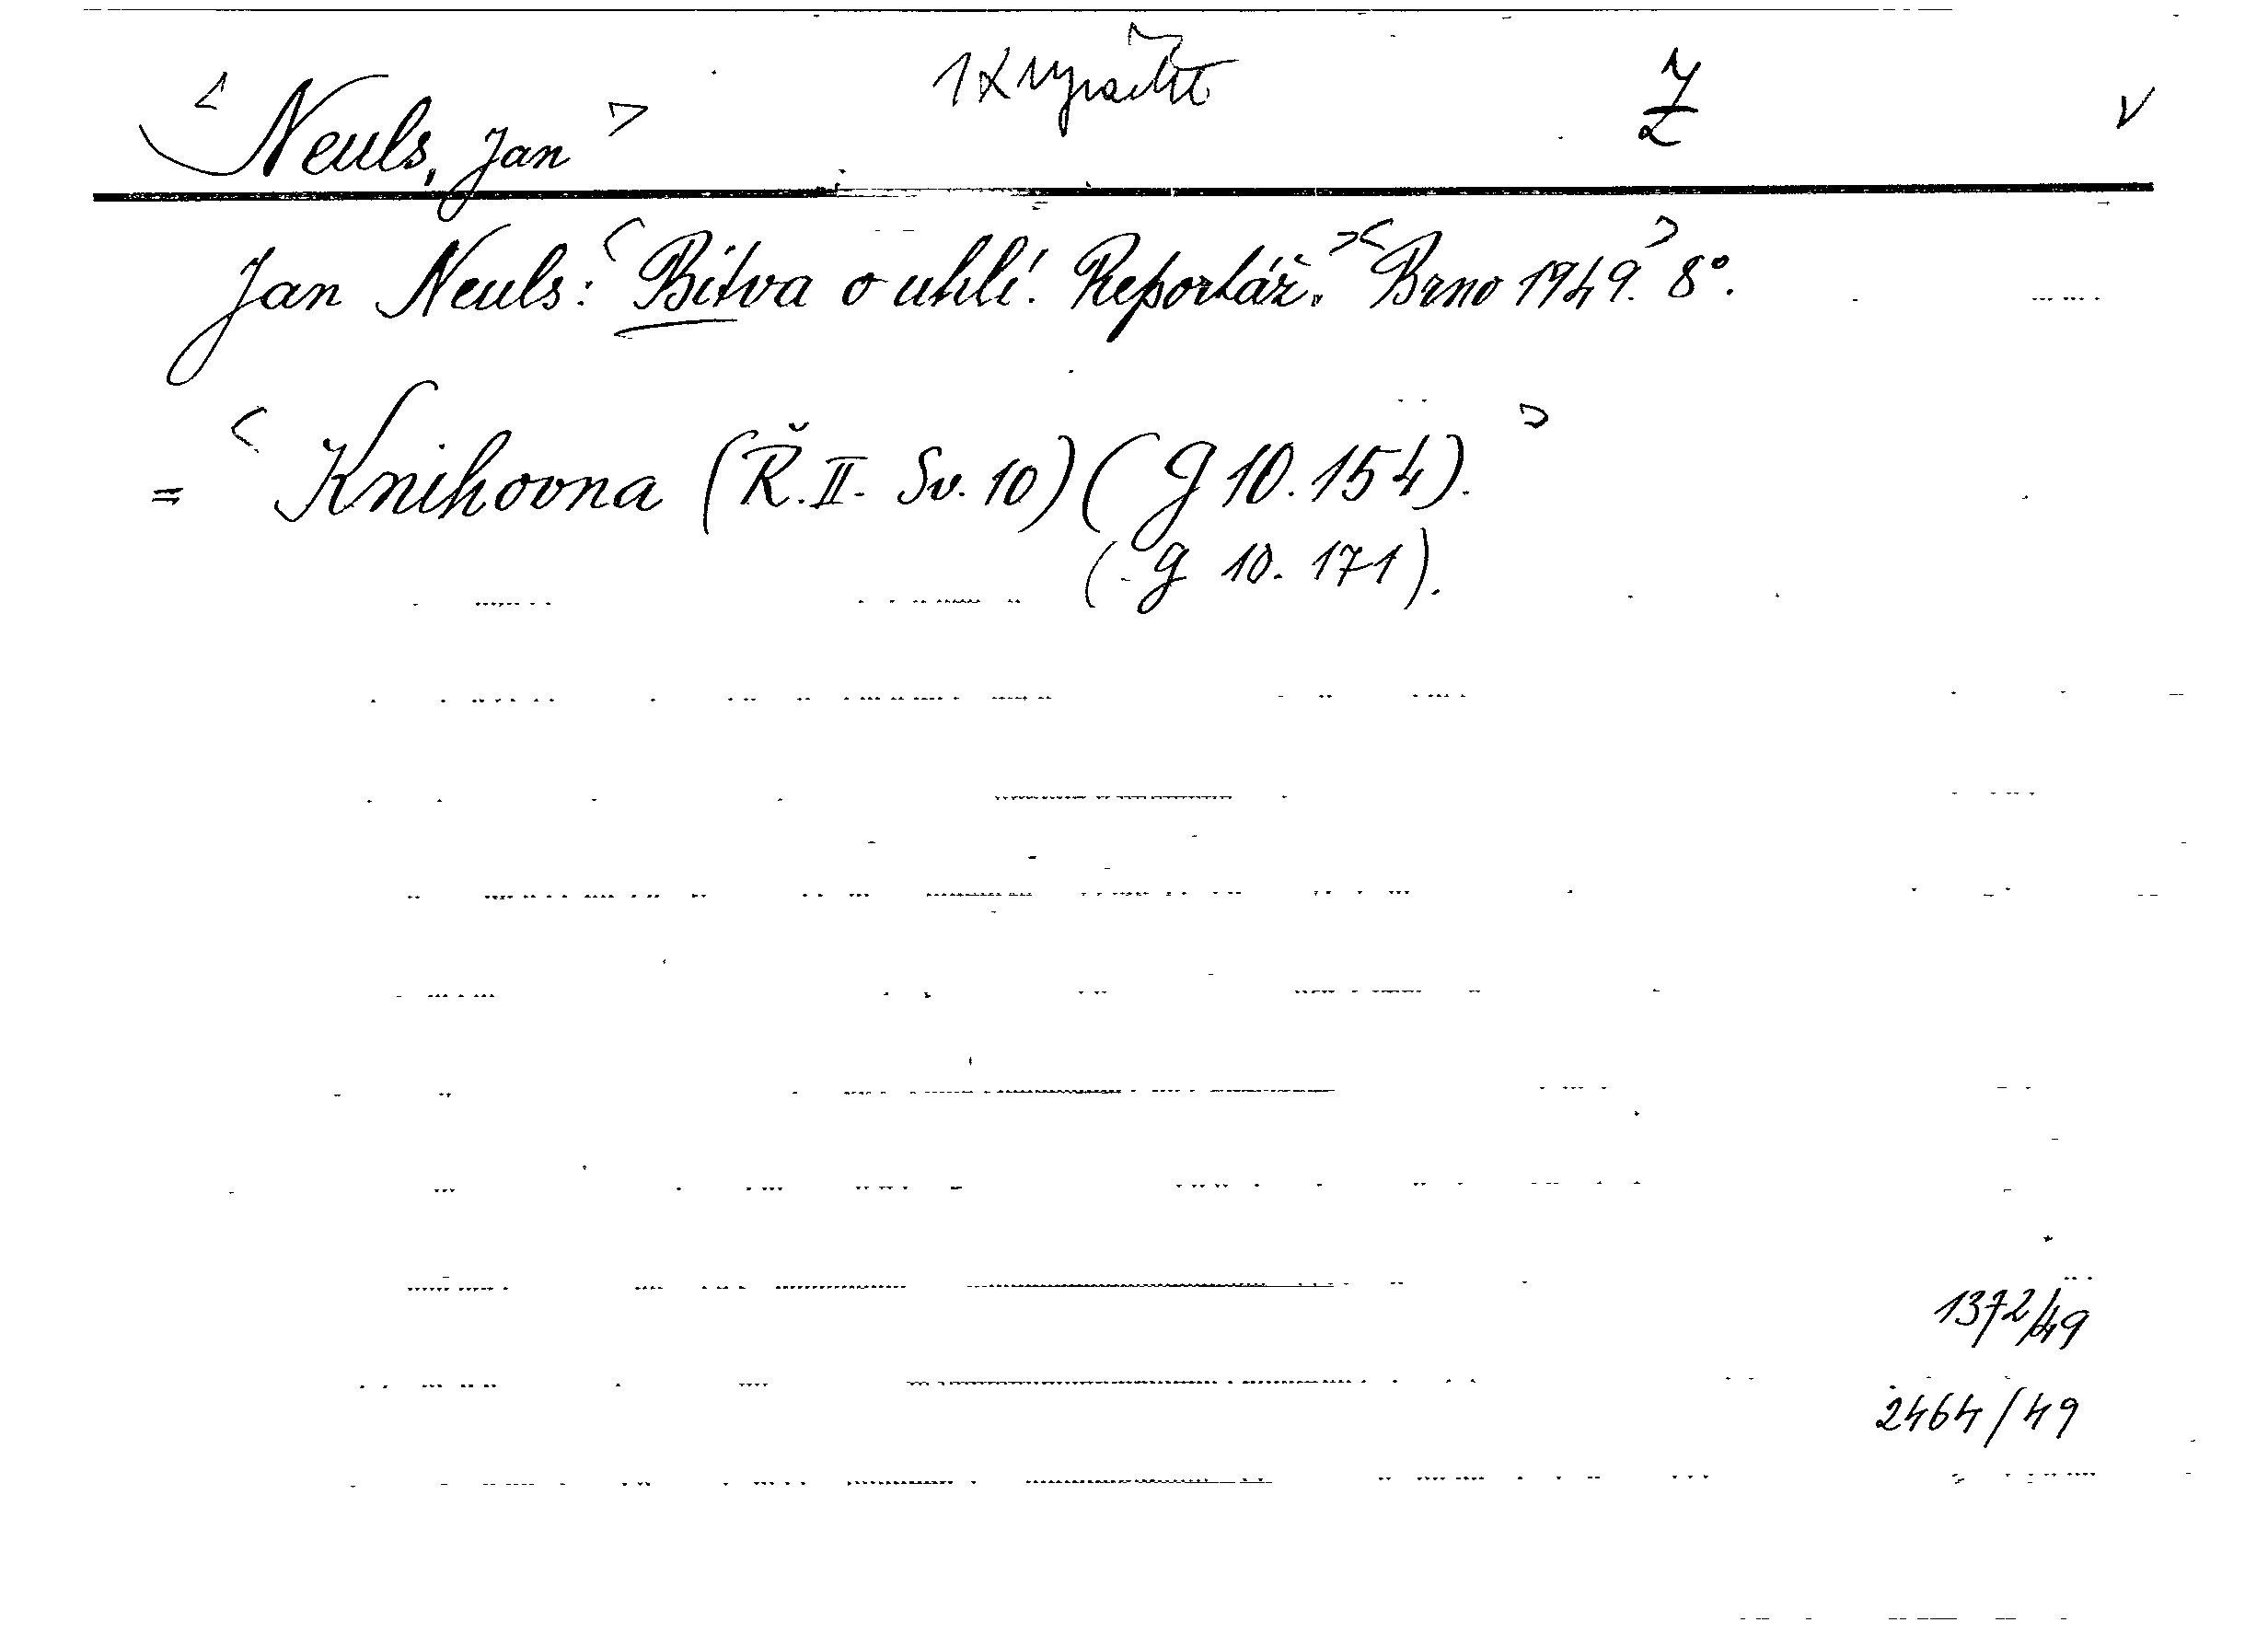 <Neuls, Jan> 1x Z v
Jan Neuls: <Bitva o uhlí. Reportáž.> <Brno 1949.> 8°.
= <Knihovna (Ř. II. Sv. 10) (G 10.154).>
(G 10. 171).
1372/49
2464/49